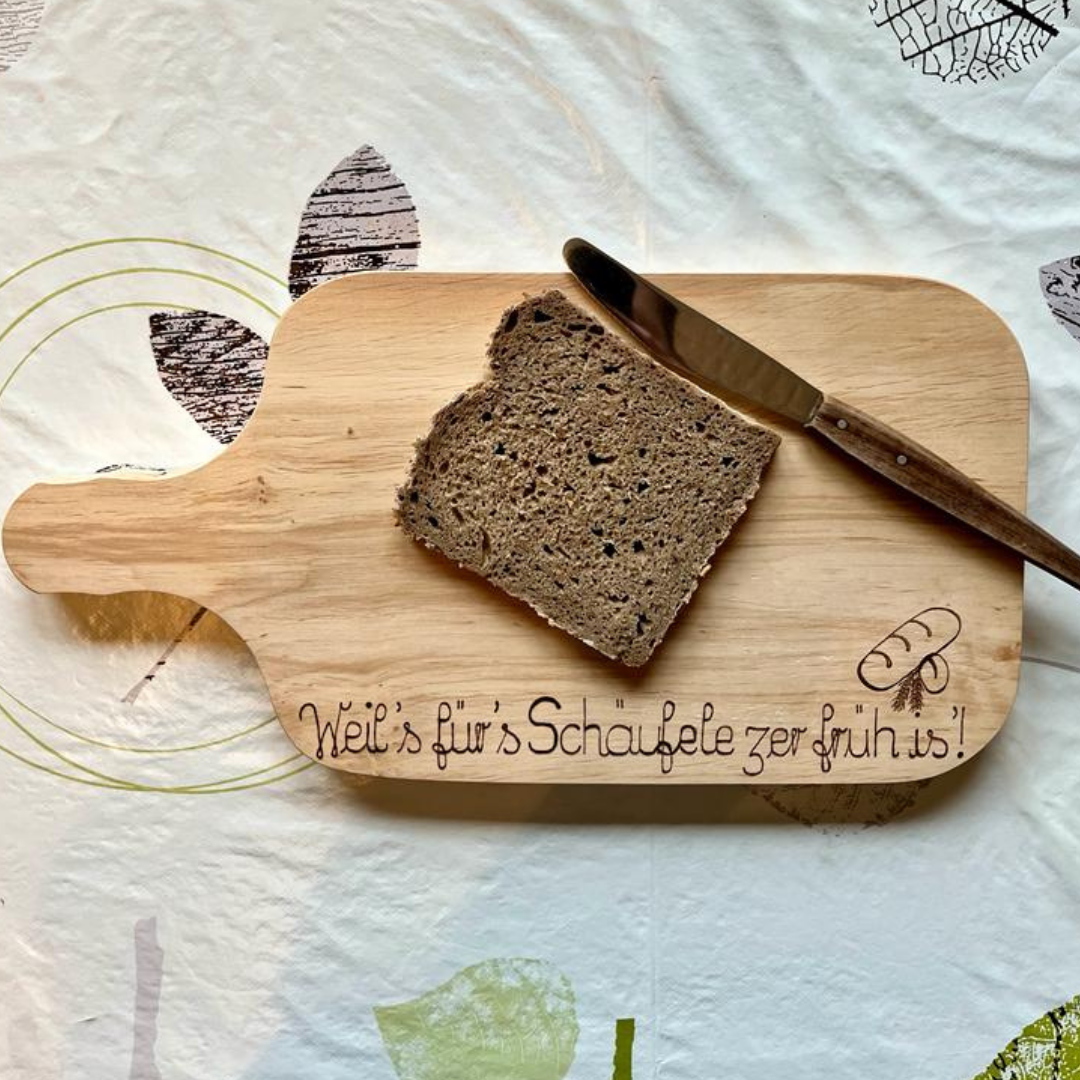 Weil's für's Schäufele zer früh is'!